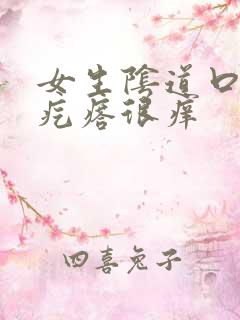 女生陰道口
疙瘩很痒
四喜兔子